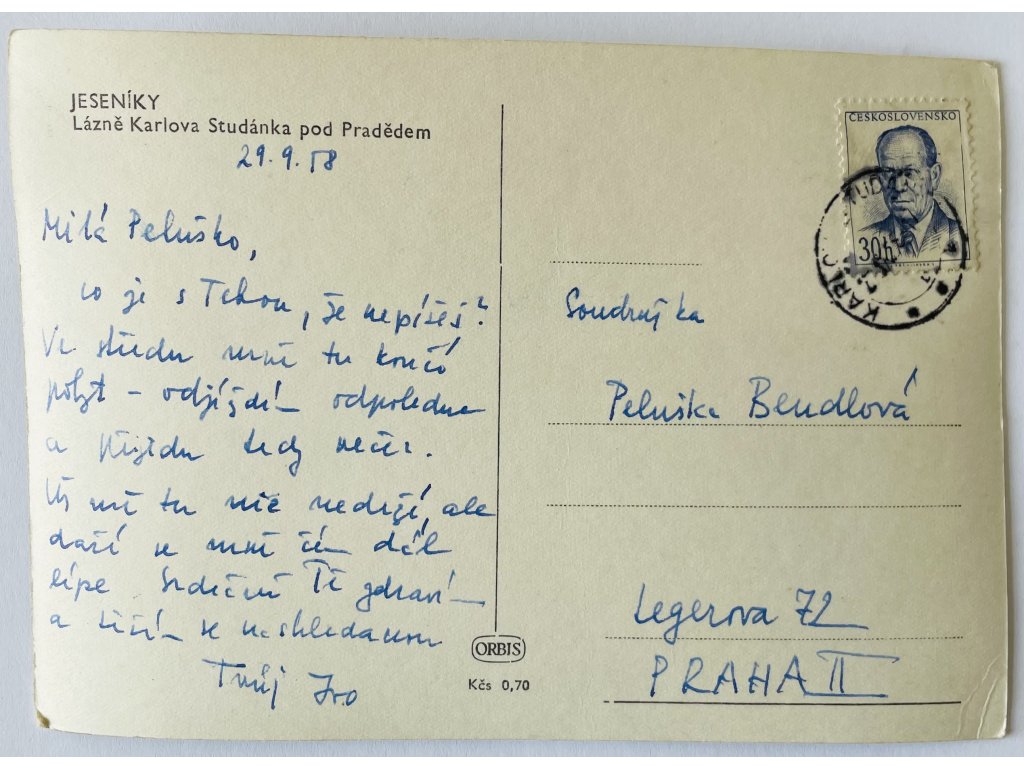 JESENÍKY
Lázně Karlova Studánka pod Pradědem
29.9.58
Milá Peluško,
co je s Tebou, že nepíšeš?
Ve středu mně tu končí
pobyt – odjíždím odpoledne
a přijedu tedy večer.
Už mě tu nic nedrží, ale
daří se mně čím dál
lépe Srdečně Tě zdravím
a těším se na shledanou
Tvůj Ivo
ORBIS
Kčs 0,70
ČESKOSLOVENSKO
30h
Soudružka
Peluška Bendlová
Legerova 72
PRAHA II